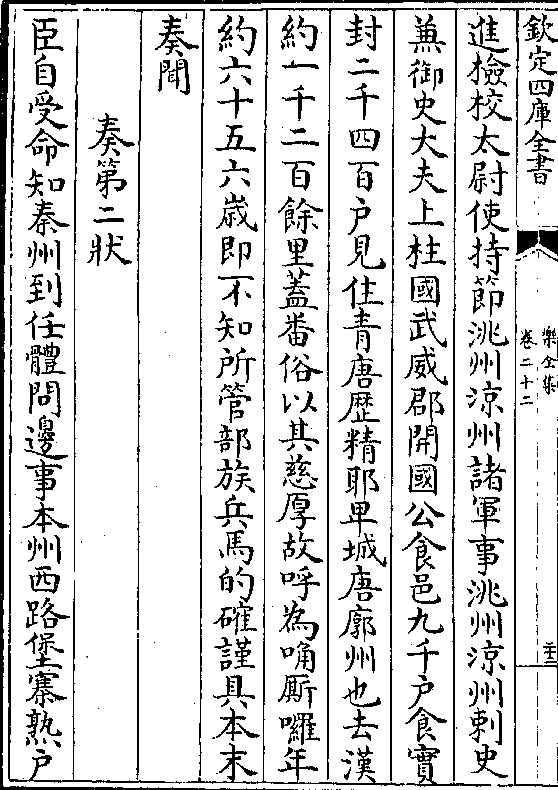 欽定四庫全書
樂全集
卷二十二
二十三
進檢校太尉使持節洮州涼州諸軍事洮州涼州刺史
兼御史大夫上柱國武威郡開國公食邑九千户食實
封二千四百户見住青唐歴精耶卑城唐廓州也去漢
約一千二百餘里蓋畨俗以其慈厚故呼為唃厮囉年
約六十五六歳即不知所管部族兵馬的確謹具本末
奏聞
奏第二狀
臣自受命知秦州到任體問邊事本州西路堡寨熟户